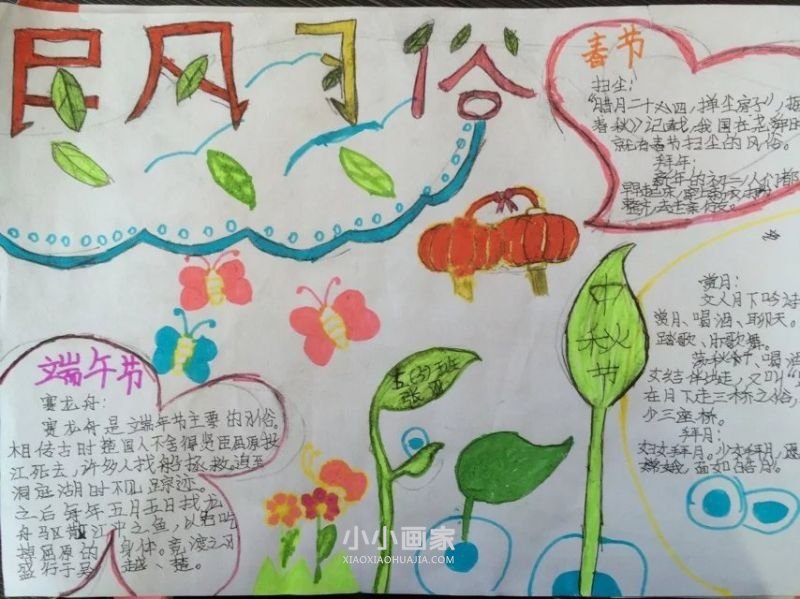 民风习俗
春节
扫尘：
"腊月二十四，掸尘房子"，据
春秋》记载，我国在尧舜时
就有春节扫尘的风俗。
拜年：
新年的初一，人们都
早早起来，
整齐，去走亲访友。
赏月：
文人月下吟诗
赏月、喝酒、聊天。
踏歌、
喝酒
女结伴 走，又叫"
在月下走三桥之俗，
少三座桥。
拜月：
妇女拜月。少女拜月，愿
嫦娥，面如皓月。
中秋节
五(3)班
张
端午节
赛龙舟：
赛龙舟是端午节主要的习俗。
相传古时楚国人不舍得贤臣屈原投
江死去，许多人找船拯救，追至
洞庭湖时不见踪迹。
之后每年五月五日找龙
舟驱散江中之鱼，以免吃
掉屈原的身体。竞渡之习
盛行于吴、越、楚。
小小画家
XIAOXIAOHUAJIA.COM